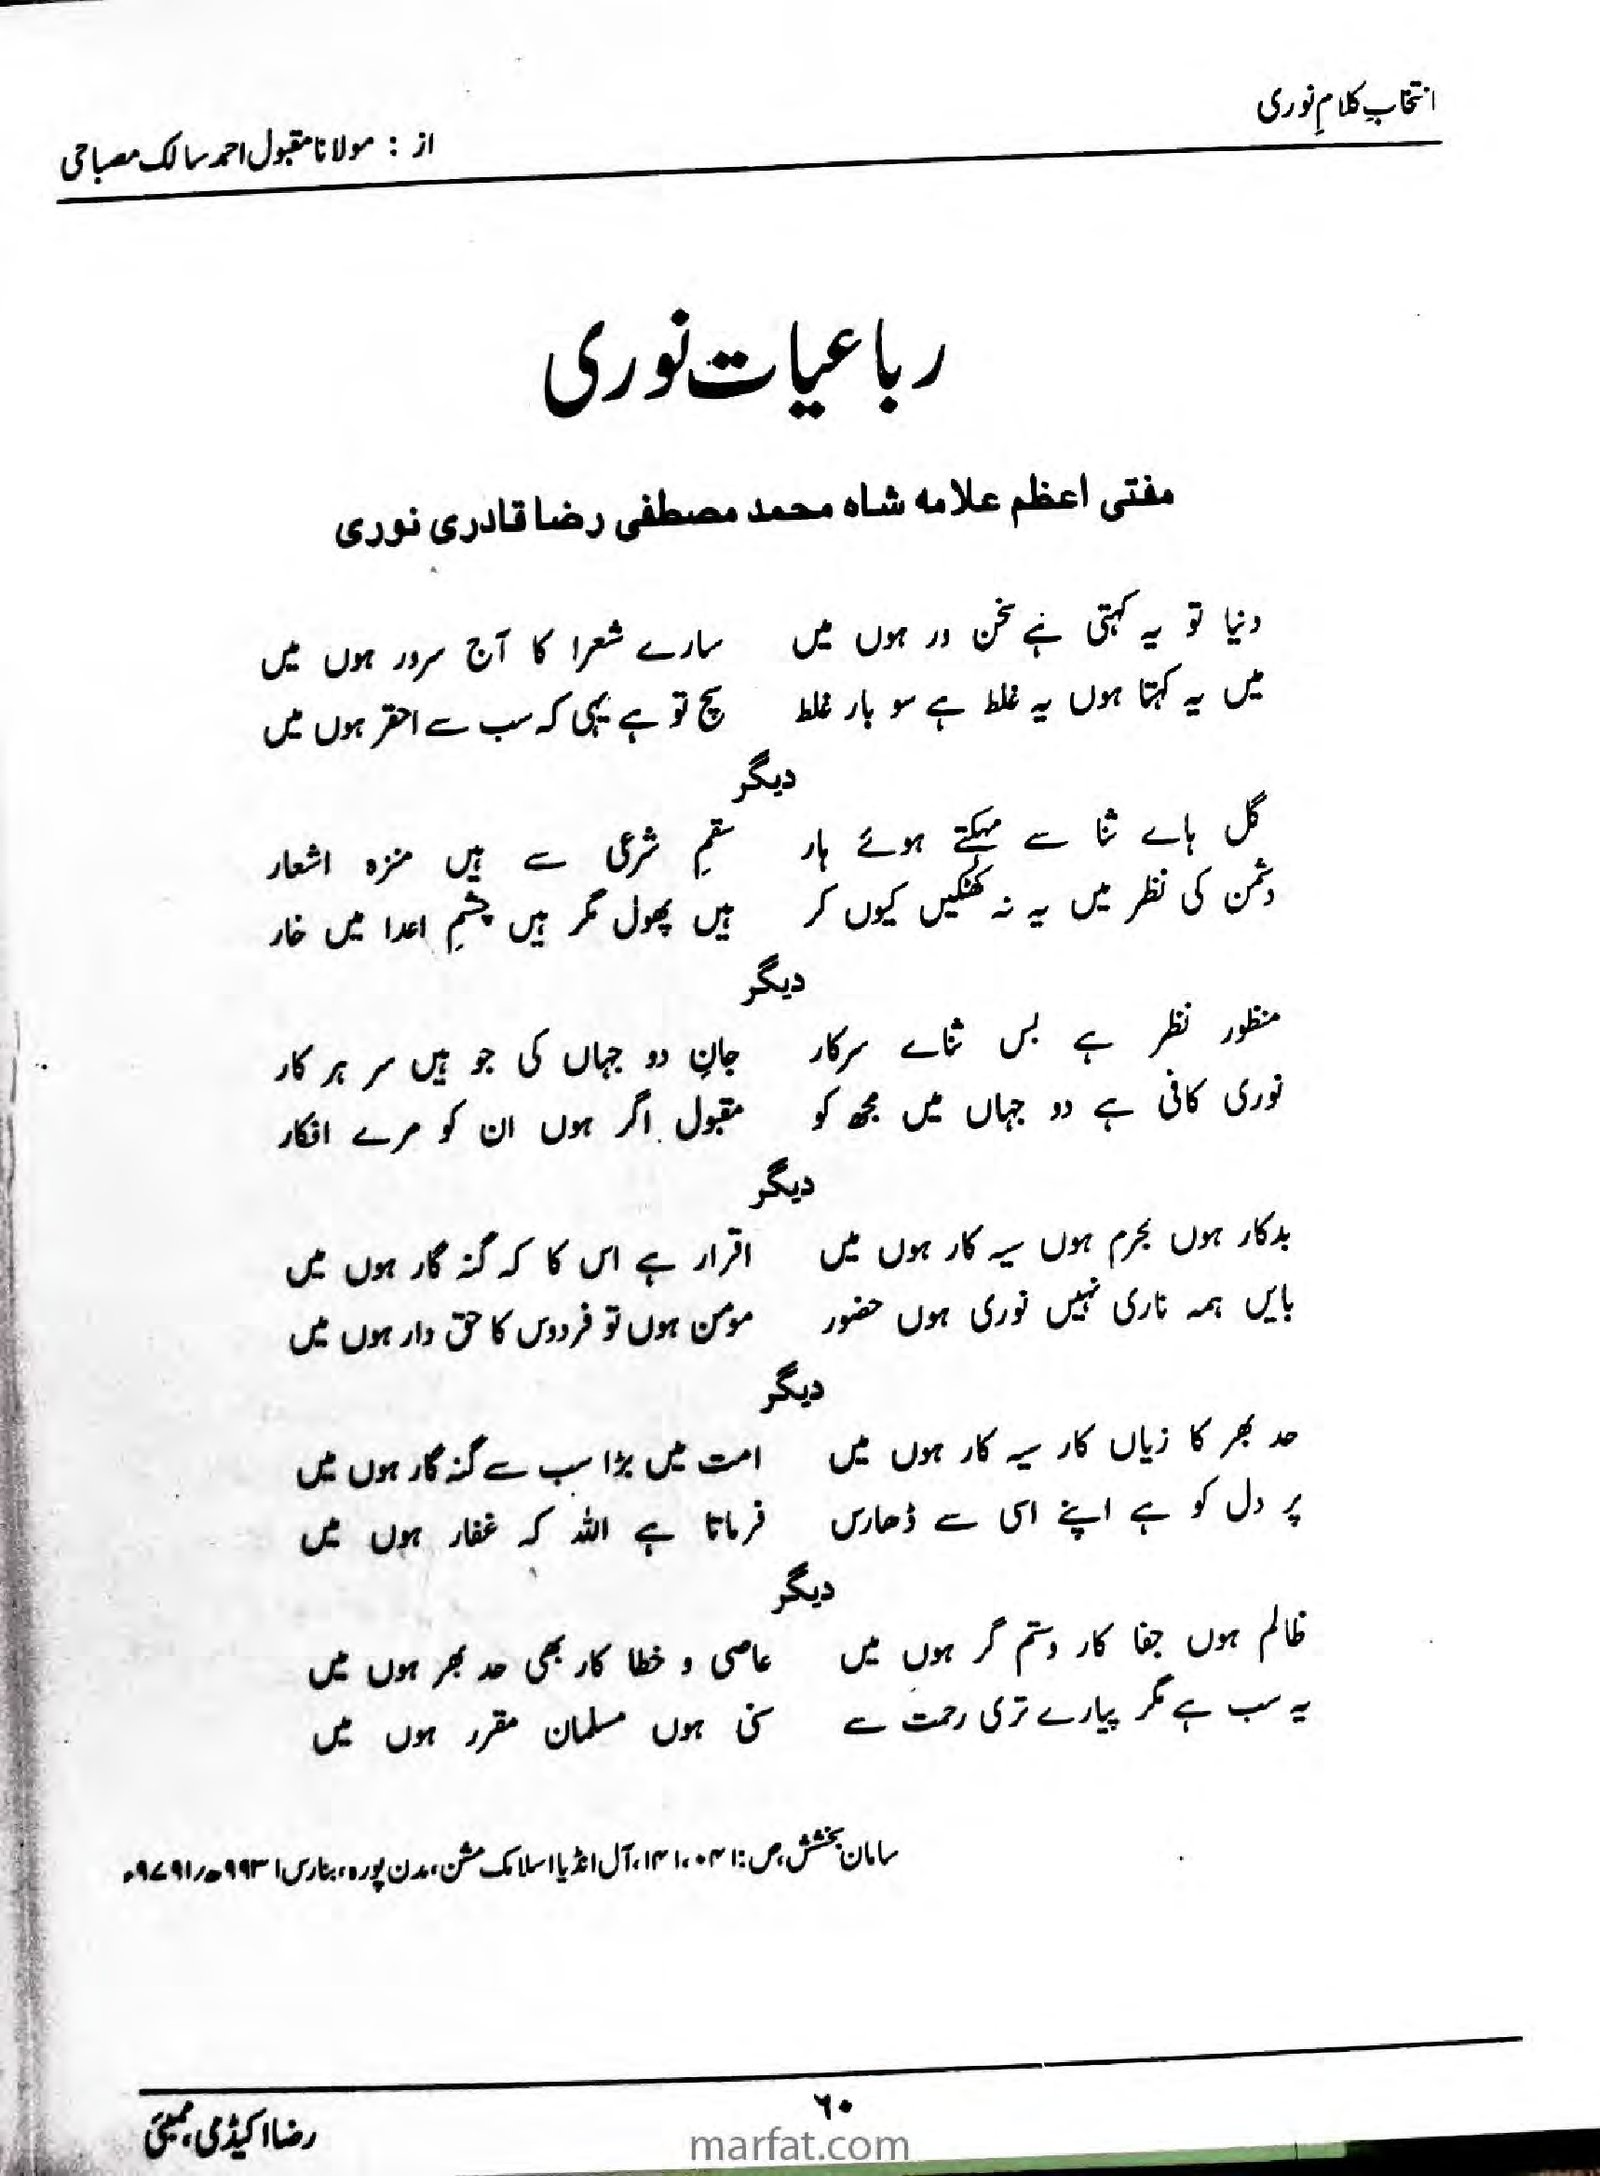 انتخابِ کلامِ نوری
از : مولانا مقبول احمد سالک مصباحی
رباعیات نوری
مفتی اعظم علامہ شاہ محمد مصطفی رضا قادری نوری
دنیا تو یہ کہتی ہے سخن ور ہوں میں سارے شعرا کا آج سرور ہوں میں
میں یہ کہتا ہوں یہ غلط ہے سو بار غلط سچ تو ہے یہی کہ سب سے احقر ہوں میں
دیگر
گل ہاے ثنا سے مہکتے ہوئے ہار سقمِ شرعی سے ہیں منزہ اشعار
دشمن کی نظر میں یہ نہ کھٹکیں کیوں کر ہیں پھول مگر ہیں چشمِ اعدا میں خار
دیگر
منظور نظر ہے بس ثناے سرکار جانِ دو جہاں کی جو ہیں سر ہر کار
نوری کافی ہے دو جہاں میں مجھ کو مقبول اگر ہوں ان کو مرے افکار
دیگر
بدکار ہوں مجرم ہوں سیہ کار ہوں میں اقرار ہے اس کا کہ گنہ گار ہوں میں
بایں ہمہ ناری نہیں نوری ہوں حضور مومن ہوں تو فردوس کا حق دار ہوں میں
دیگر
حد بھر کا زیاں کار سیہ کار ہوں میں امت میں بڑا سب سے گنہ گار ہوں میں
پر دل کو ہے اپنے اسی سے ڈھارس فرماتا ہے اللہ کہ غفار ہوں میں
دیگر
ظالم ہوں جفا کار و ستم گر ہوں میں عاصی و خطا کار بھی حد بھر ہوں میں
یہ سب ہے مگر پیارے تری رحمت سے سنی ہوں مسلمان مقرر ہوں میں
سامان بخشش، ص: ۱۴۰، ۱۴۱، آل انڈیا اسلامک مشن، مدن پورہ، بنارس ۱۳۹۹ھ/۱۹۷۹ء
۶۰
رضا اکیڈمی، ممبئی
marfat.com